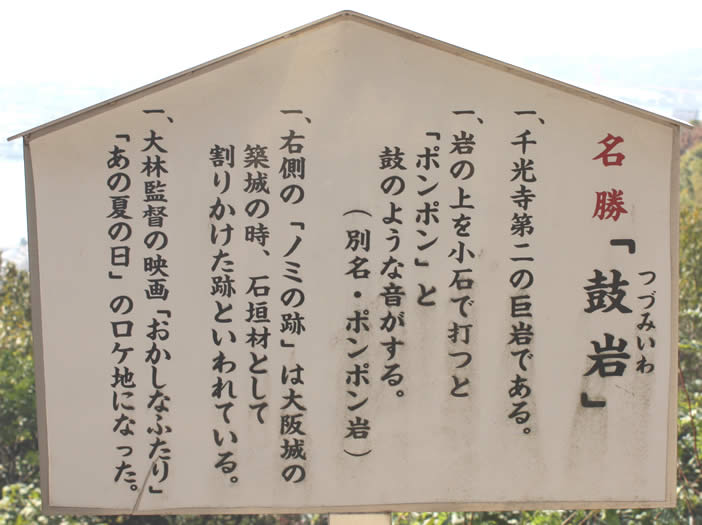 名勝「鼓岩」
つづみいわ
一、千光寺第二の巨岩である。
一、岩の上を小石で打つと
「ポンポン」と
鼓のような音がする。
（別名・ポンポン岩）
一、右側の「ノミの跡」は大阪城の
築城の時、石垣材として
割りかけた跡といわれている。
一、大林監督の映画「おかしなふたり」
「あの夏の日」のロケ地になった。